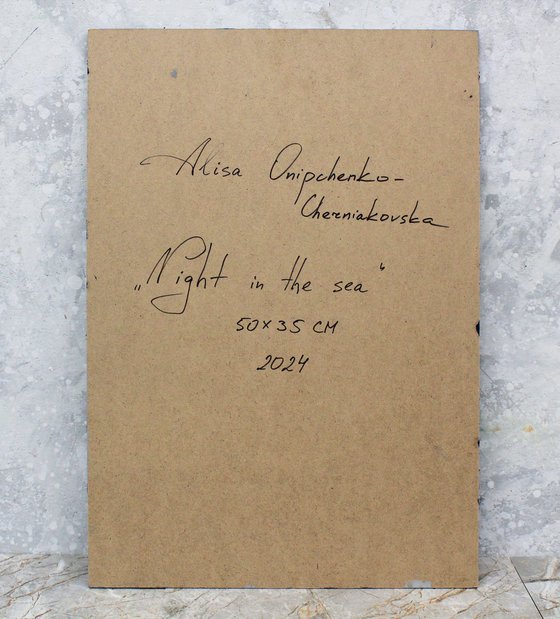 Alisa Onipchenko-
Cherniakovska
„Night in the sea“
50x35 CM
2024